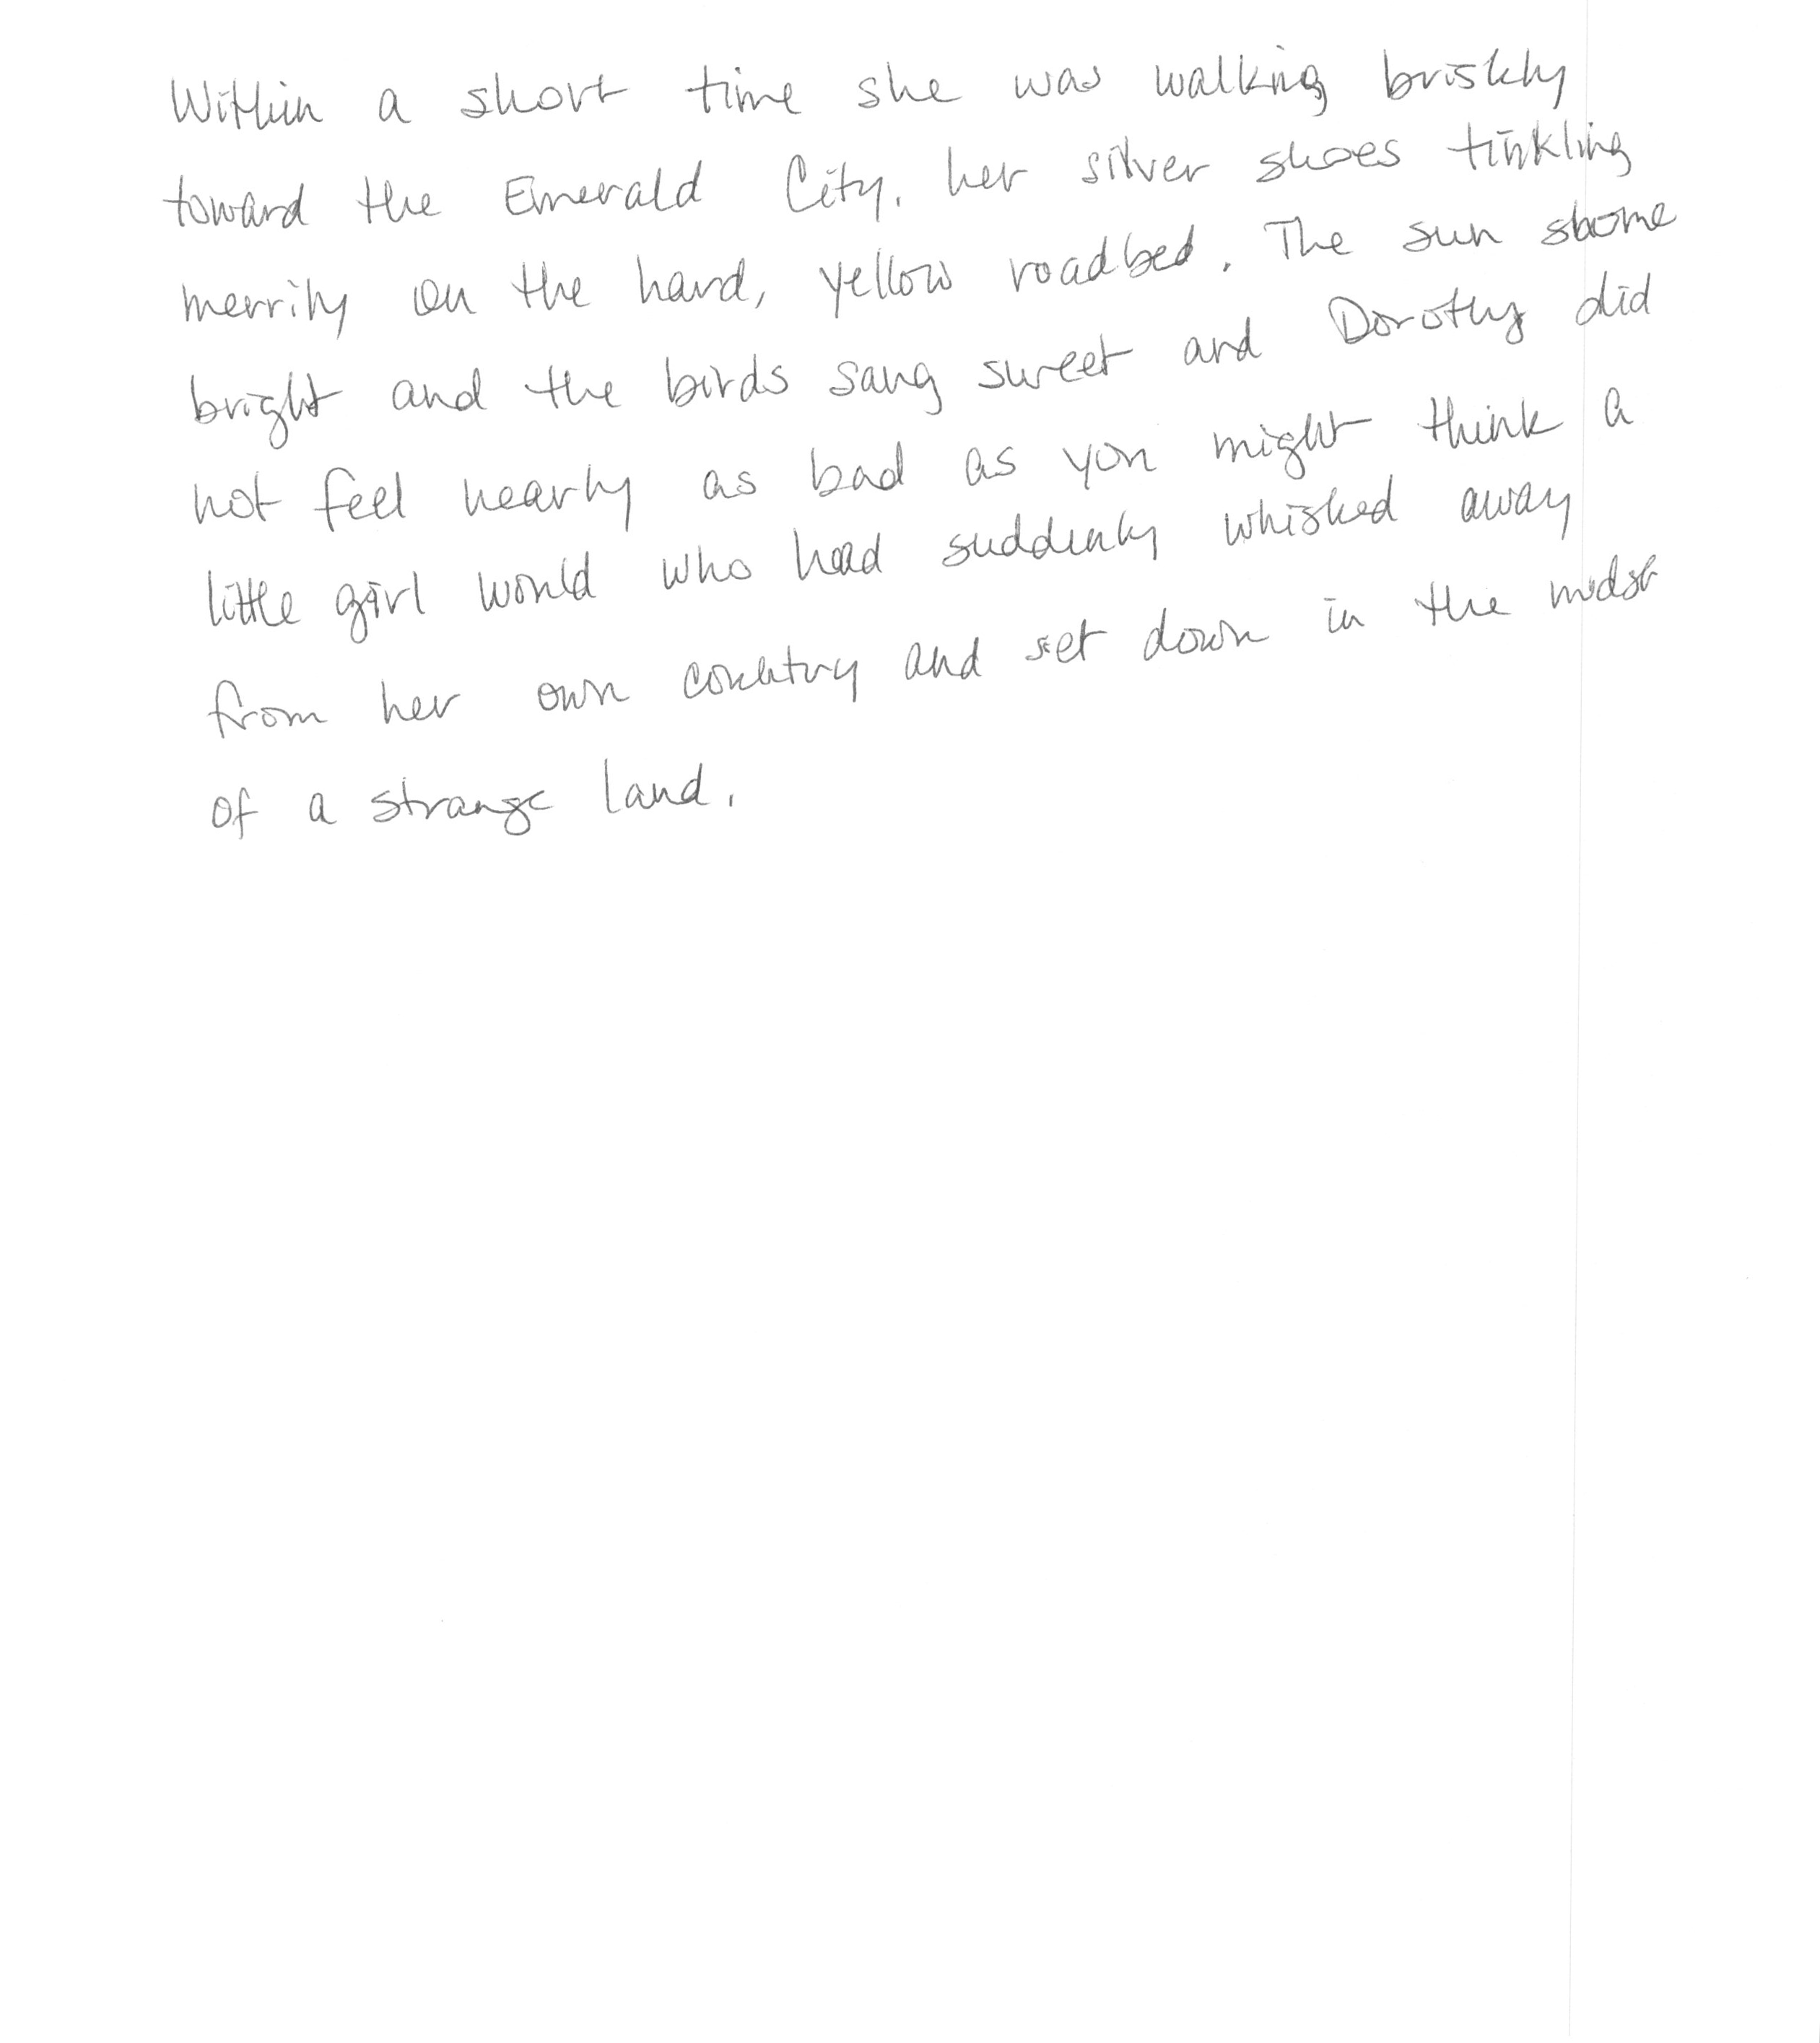 Within a short time she was walking briskly
toward the Emerald City, her silver shoes tinkling
merrily on the hard, yellow roadbed. The sun shone
bright and the birds sang sweet and Dorothy did
not feel nearly as bad as you might think a
little girl would who had suddenly whisked away
from her own country and set down in the midst
of a strange land.